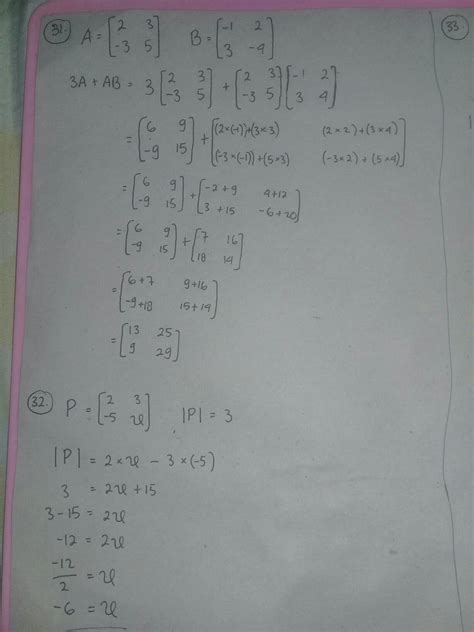 31. A = [2 3; -3 5] B = [-1 2; 3 -4]
3A + AB = 3 [2 3; -3 5] + [2 3; -3 5] [-1 2; 3 4]
= [6 9; -9 15] + [(2×(-1))+(3×3) (2×2)+(3×4); (-3×(-1))+(5×3) (-3×2)+(5×4)]
= [6 9; -9 15] + [-2+9 4+12; 3+15 -6+20]
= [6 9; -9 15] + [7 16; 18 14]
= [6+7 9+16; -9+18 15+14]
= [13 25; 9 29]
32. P = [2 3; -5 u] |P| = 3
|P| = 2×u - 3×(-5)
3 = 2u + 15
3-15 = 2u
-12 = 2u
-12/2 = u
-6 = u
33.